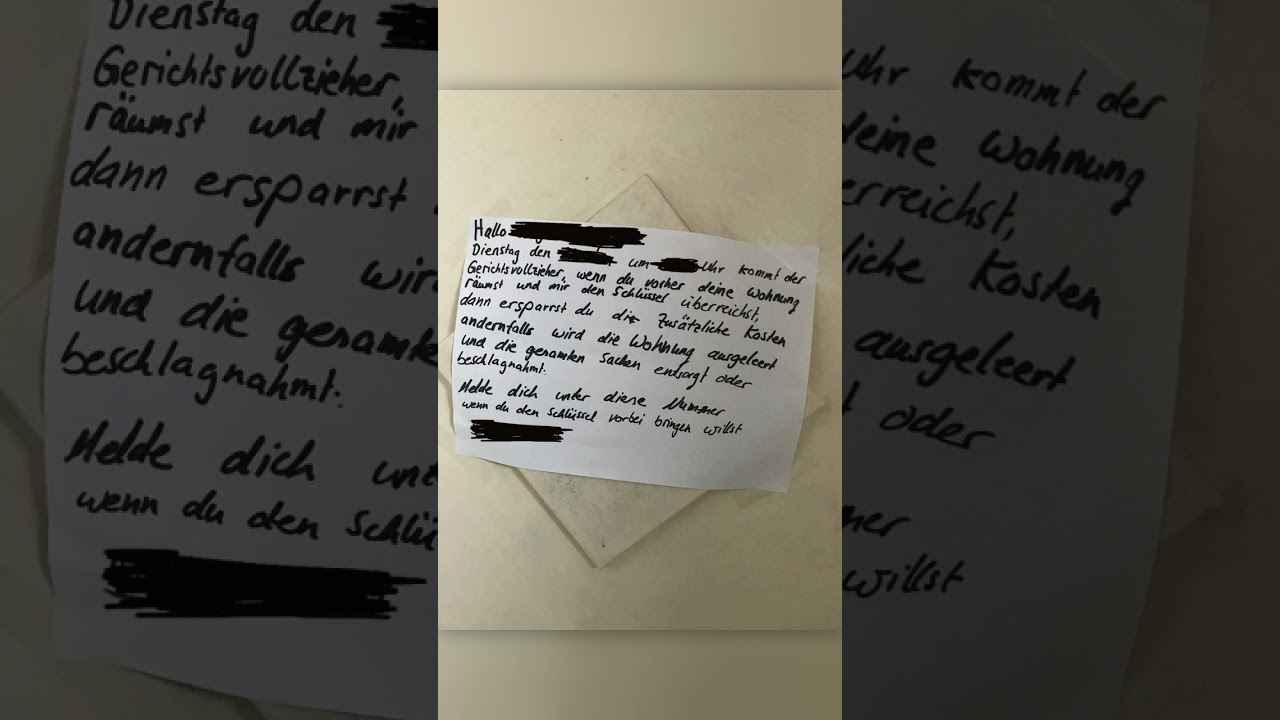 Hallo
Dienstag den um Uhr kommt der
Gerichtsvollzieher, wenn du vorher deine Wohnung
räumst und mir den Schlüssel überreichst,
dann ersparrst du die Zusätzliche Kosten
andernfalls wird die Wohnung ausgeleert
und die genamten Sachen entsorgt oder
beschlagnahmt.
Melde dich unter diese Nummer
wenn du den Schlüssel vorbei bringen willst